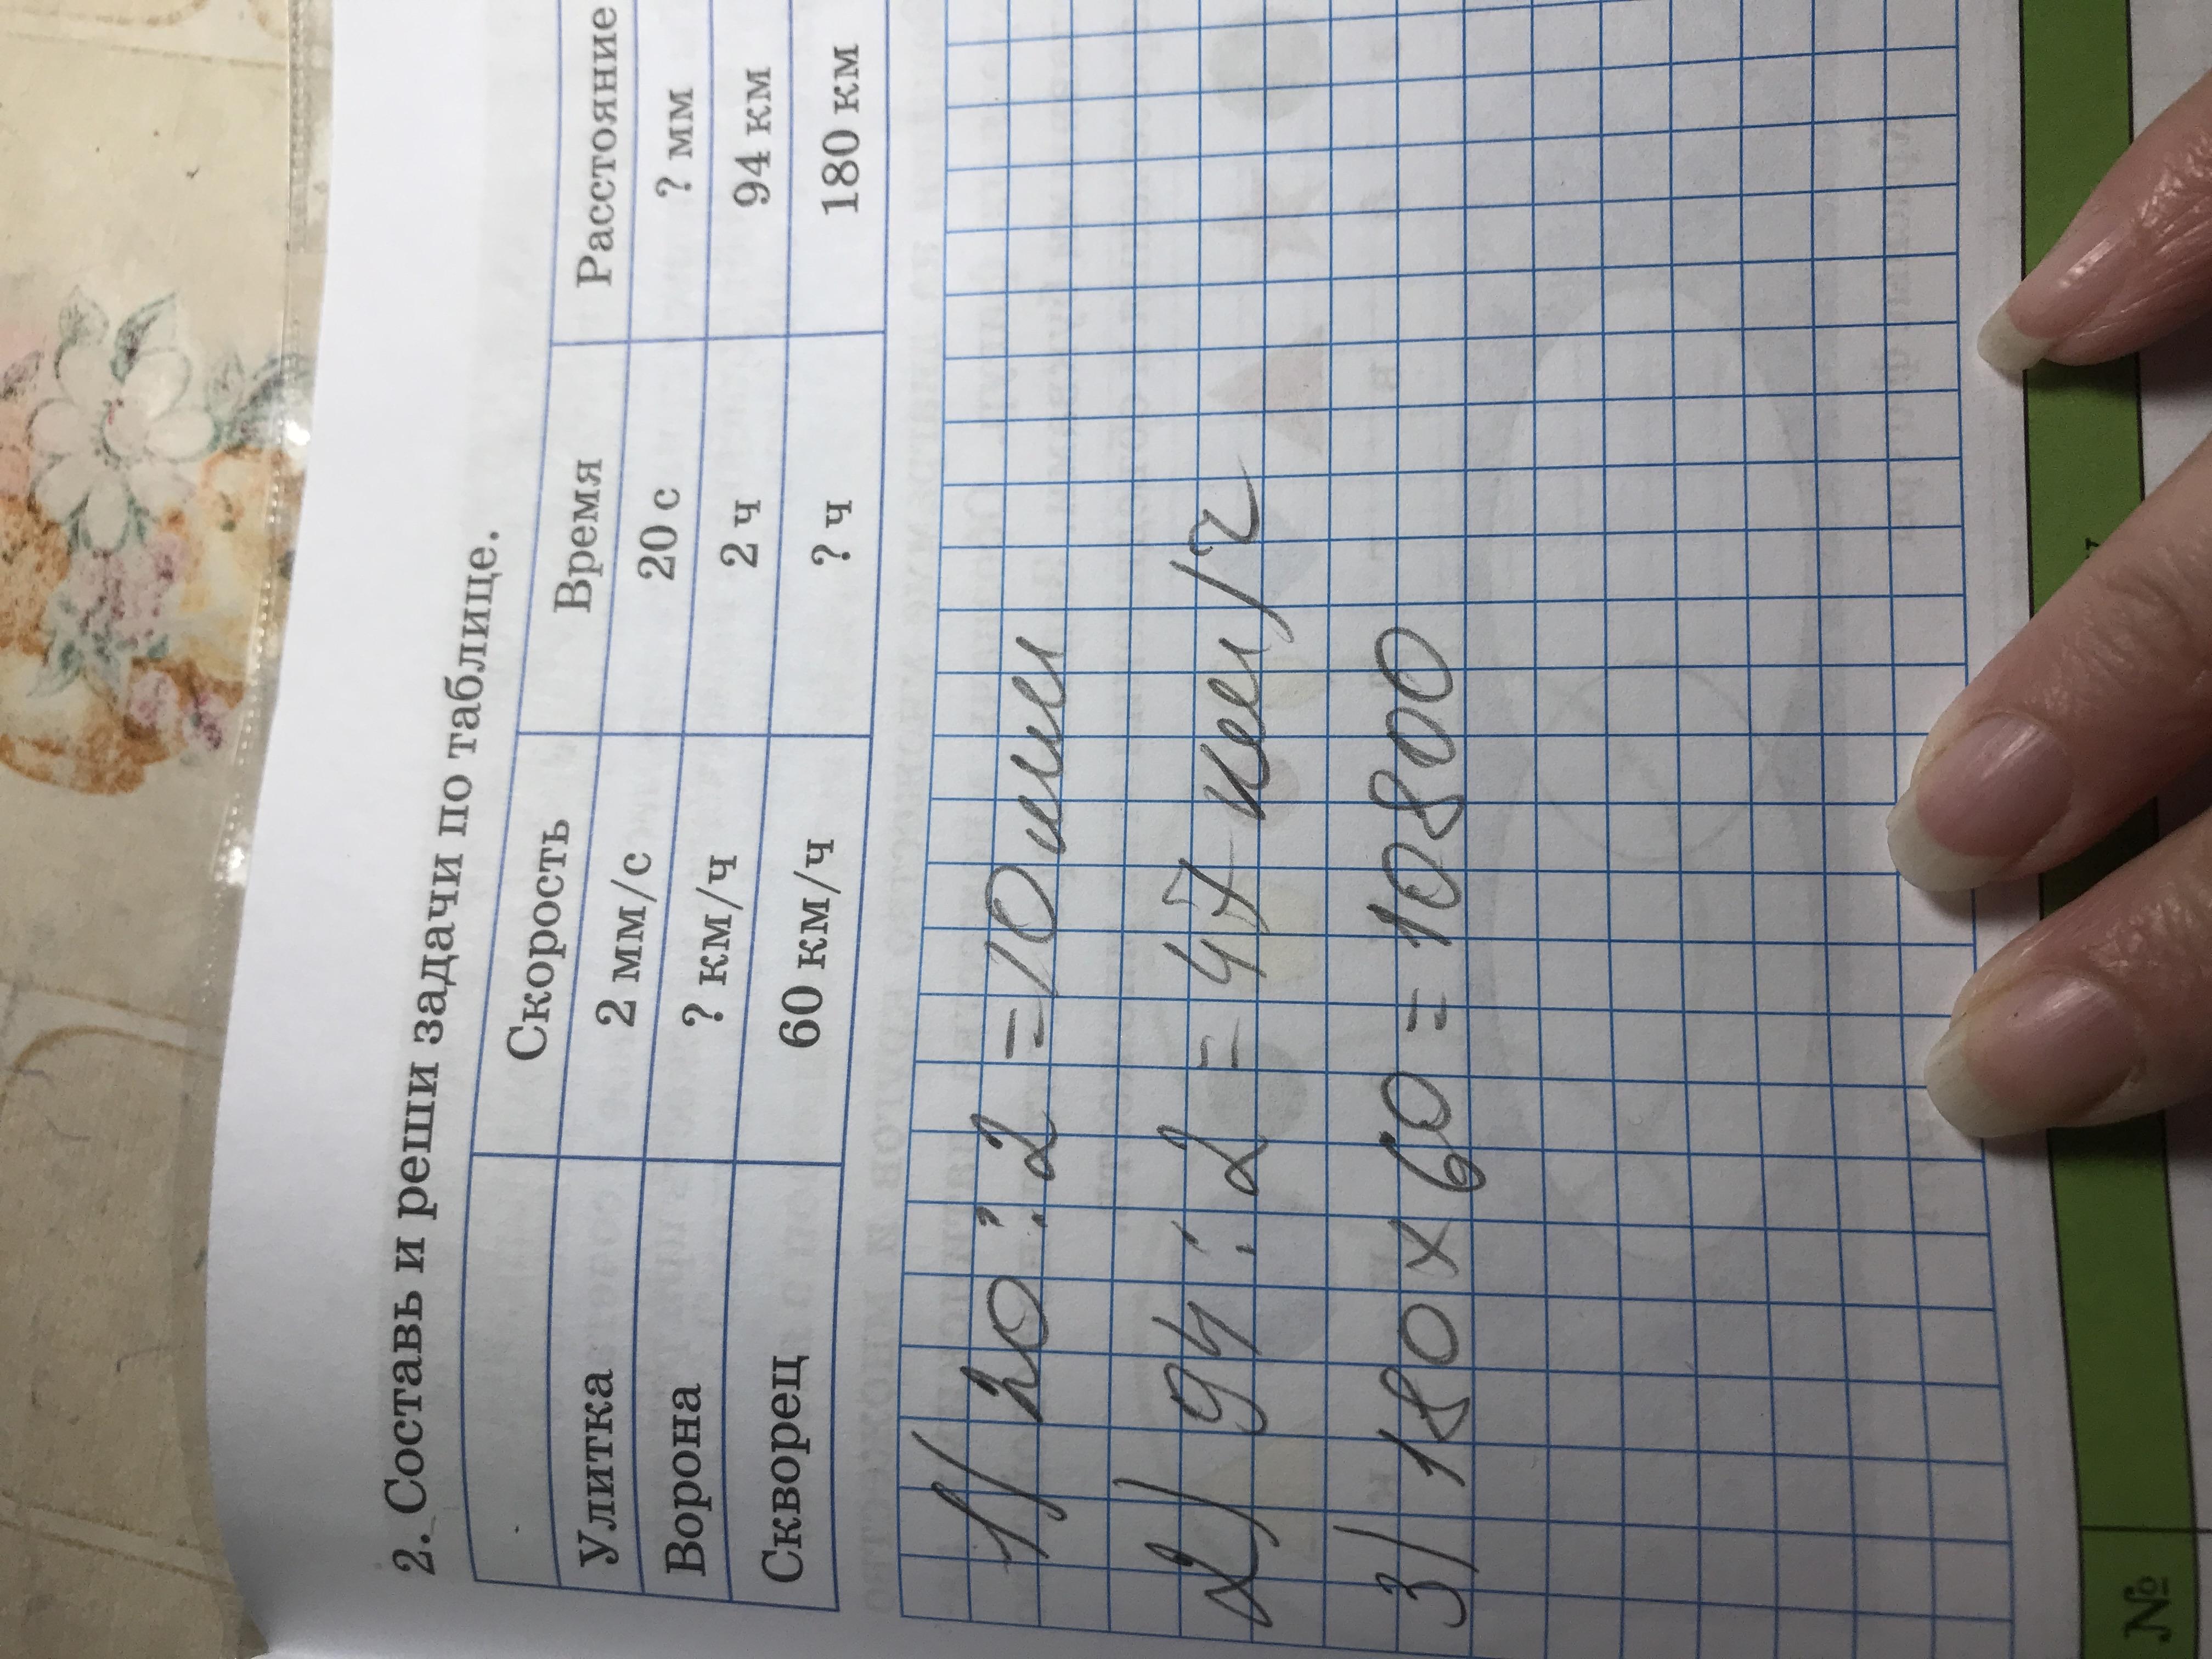 2. Составь и реши задачи по таблице.
Скорость Время Расстояние
Улитка 2 мм/с 20 с ? мм
Ворона ? км/ч 2 ч 94 км
Скворец 60 км/ч ? ч 180 км
1) 20 : 2 = 10 мм
2) 94 : 2 = 47 км/ч
3) 180 x 60 = 10800
№